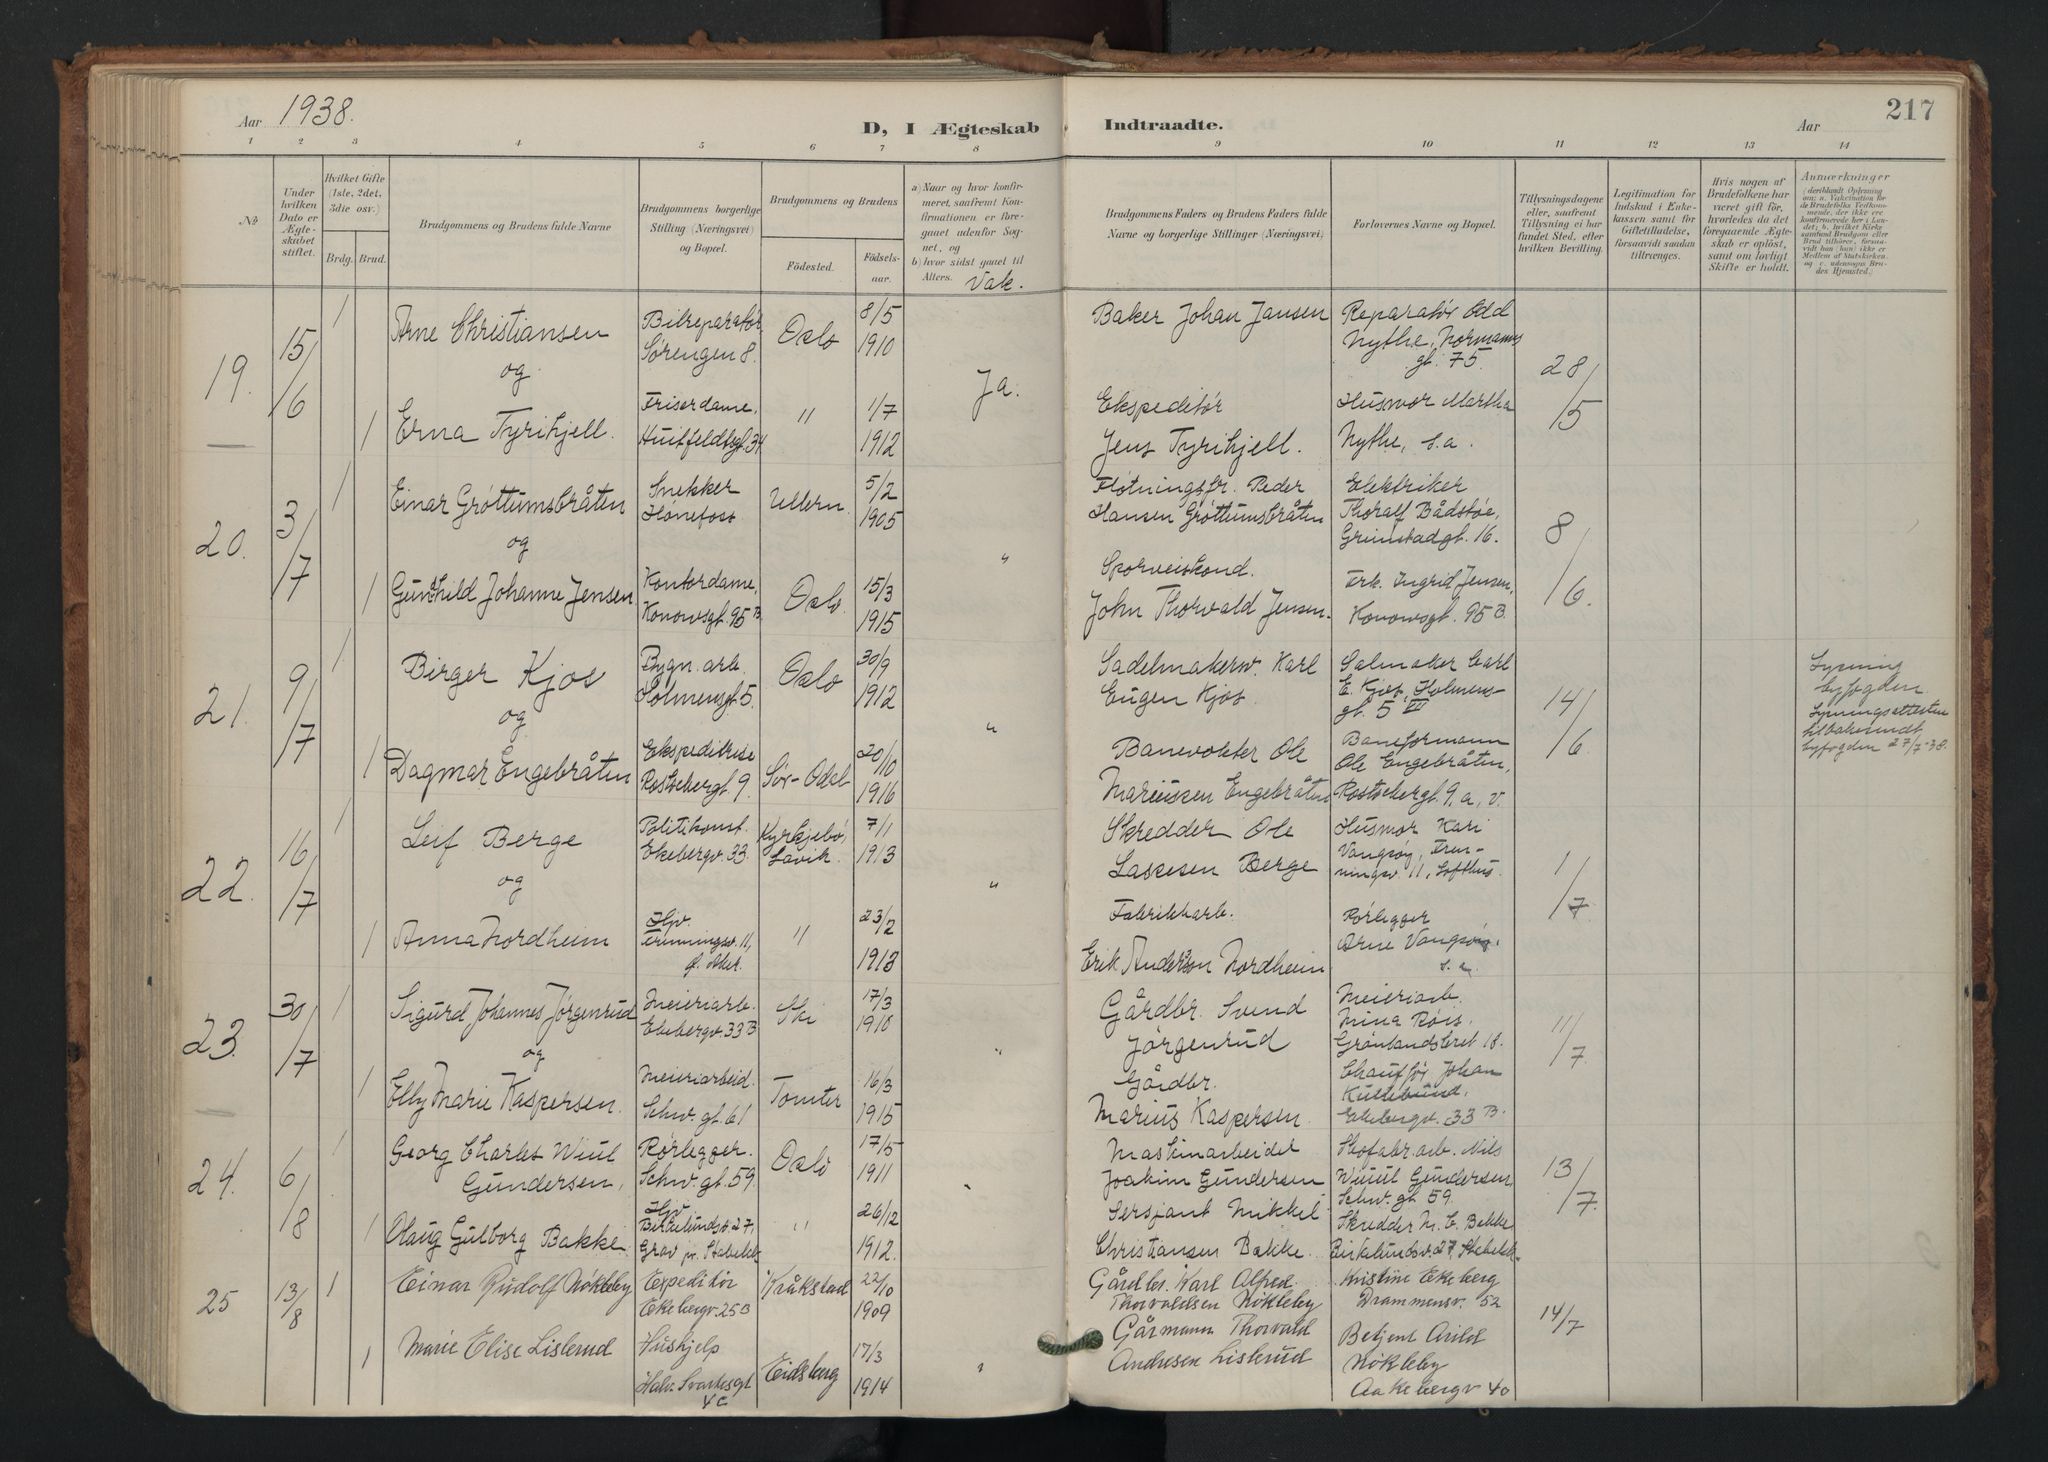 Aar 1938.
D, I Ægteskab Indtraadte.
Aar 217
1 2 3 4 5 6 7 8 9 10 11 12 13 14
No.
Under hvilken Dato er Ægteskabet stiftet.
Hvilket Gifte (1ste, 2det, 3die osv.)
Brdg. Brud.
Brudgommens og Brudens fulde Navne
Brudgommens borgerlige Stilling (Næringsvei) og Bopæl.
Brudgommens og Brudens
Födested. Födselsaar.
a) Naar og hvor konfirmeret, saafremt Konfirmationen er foregaaet udenfor Sognet, og
b) hvor sidst gaaet til Alters.
Vak.
Brudgommens Faders og Brudens Faders fulde Navne og borgerlige Stillinger (Næringsvei)
Forlovernes Navne og Bopæl.
Tillysningsdagene eller, saafremt Tillysning ei har fundet Sted, efter hvilken Bevilling.
Legitimation for Indskud i Enkekassen samt for Giftetilladelse, forsaavidt saadan tiltrænges.
Hvis nogen af Brudefolkene har været gift før, hvorledes da det foregaaende Ægteskab er oplöst, samt om lovligt Skifte er holdt.
Anmærkninger
19. 15/6
1 Arne Christiansen
Bilreparatør
Sørengen 8.
Oslo
8/5
1910
Baker Johan Jansen
Reparatør Odd
Nythe, Normanns
gt. 75.
28/5
og
Ja.
1 Erna Tyrihjell.
Friserdame,
Huitfeldtsgt. 34
"
1/7
1912
Ekspeditør
Jens Tyrihjell.
Husmor Martha
Nythe, s.a.
20. 3/7
1 Einar Gróttumsbråten
Snekker
Hønefoss
Ullern.
5/2
1905
Fløtningsfr. Peder
Hansen Gróttumsbråten
Elektriker
Thoralf Bådstøe,
Grimstadgt. 16.
8/6.
og
"
1 Gunhild Johanne Jensen
Kontordame,
Konowsgt. 95 B
Oslo.
15/3
1915
Sporveiskond.
John Thorvald Jensen.
Frk. Ingrid Jensen,
Konowsgt. 95 B.
21. 9/7
1 Birger Kjos
Bygn. arb.
Holmensgt. 5.
Oslo
30/9
1912
Sadelmakersv. Karl
Eugen Kjos
Salmaker Carl
E. Kjos, Holmens-
gt. 5 III
14/6
Lysning
byfogden
Lysningsattesten
tilbakesendt
byfogden 27/7-38.
og
"
1 Dagmar Engebråten
Ekspeditrise
Rostedsbergt. 9.
Sør-Odal
20/10
1916
Banevokter Ole
Mariussen Engebråten
Baneformann
Ole Engebråten,
22. 16/7
1 Leif Berge
Politikonst.
Ekebergv. 33.
Kyrkjebø,
Lavik.
7/1
1913
Skredder Ole
Lassesen Berge
Husmor Kari
1/7
og
"
1 Anna Nordheim
Hjv.
"
23/2
1913
Fabrikkarb.
Erik Anderson Nordheim
Rørlegger
Arne
s. a.
23. 30/7
1 Sigurd Johannes Jørgenrud
Meieriarb.
Ekebergv. 33 B
Ski
17/3
1910
Gårdbr. Svend
Jørgenrud
Meieriarb.
Mina Røis.
Grønlandsleret 18.
11/7
og
"
1 Elly Marie Kaspersen.
Meieriarbeid.
Schw. gt. 61
Tomter
16/3
1915
Gårdbr.
Marius Kaspersen
Chauffør Johan
Ekebergv. 33 B.
24. 6/8
1 Georg Charles Wiul
Gundersen,
Rørlegger.
Schw. gt. 59.
Oslo
17/5
1911
Maskinarbeider
Joakim Gundersen
Skofabr. arb. Nils
Wiuul Gundersen,
Schw. gt. 59.
13/7.
"
1 Olaug Gulborg Bakke
Hjv.
Birkelundsv. 27,
Grav pr. Stabekk
"
26/12
1912.
Sersjant Mikkel
Christiansen Bakke.
Skredder M. C. Bakke
Birkelundsv. 27, Stabekk
25 13/8
1 Einar Rudolf Nøkleby
Expeditør
Ekebergv. 25 B
Kråkstad
22/10
1909
Gårdbr. Karl Alfred
Thorvaldsen Nøkleby
Kristine Ekeberg
Drammensv. 52
14/7
1 Marie Elise Lislerud
Hushjelp
Halv. Svartesgt
4 c
Eidsberg
17/3
1914
"
Gårmann Thorvald
Andresen Lislerud
Betjent Arild
Nøkleby
Aakebergv 40